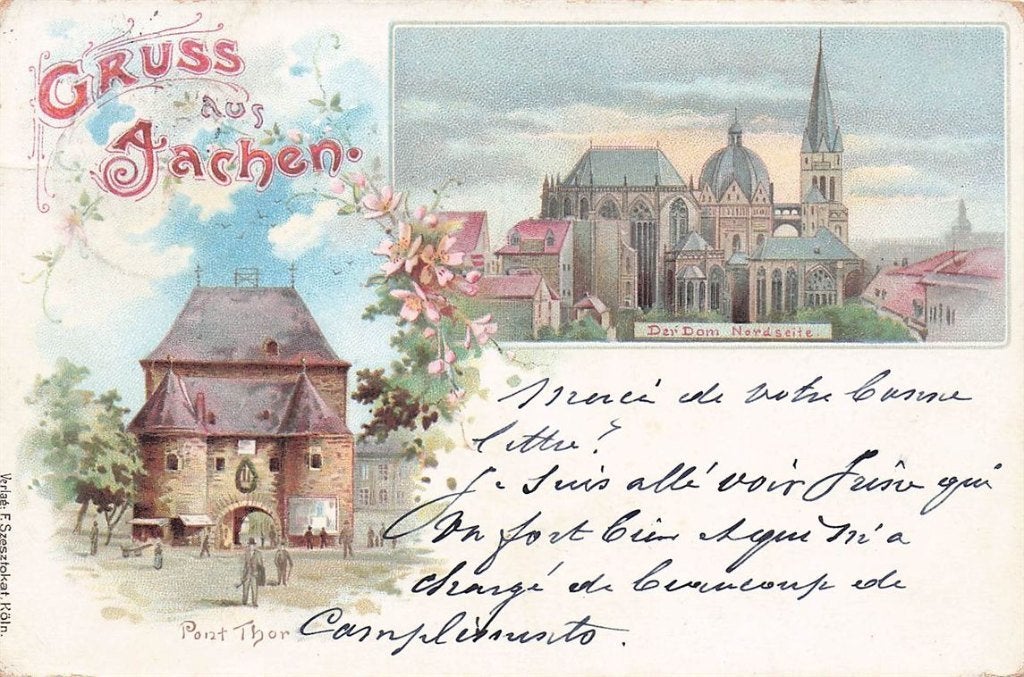 GRUSS
aus
Aachen.
Der Dom Nordseite
Merci de votre bonne
lettre!
Je suis allé voir qui
va fort bien et qui m'a
chargé de beaucoup de
compliments.
Pont Thor
Verlag: F. Szesztokat, Köln.